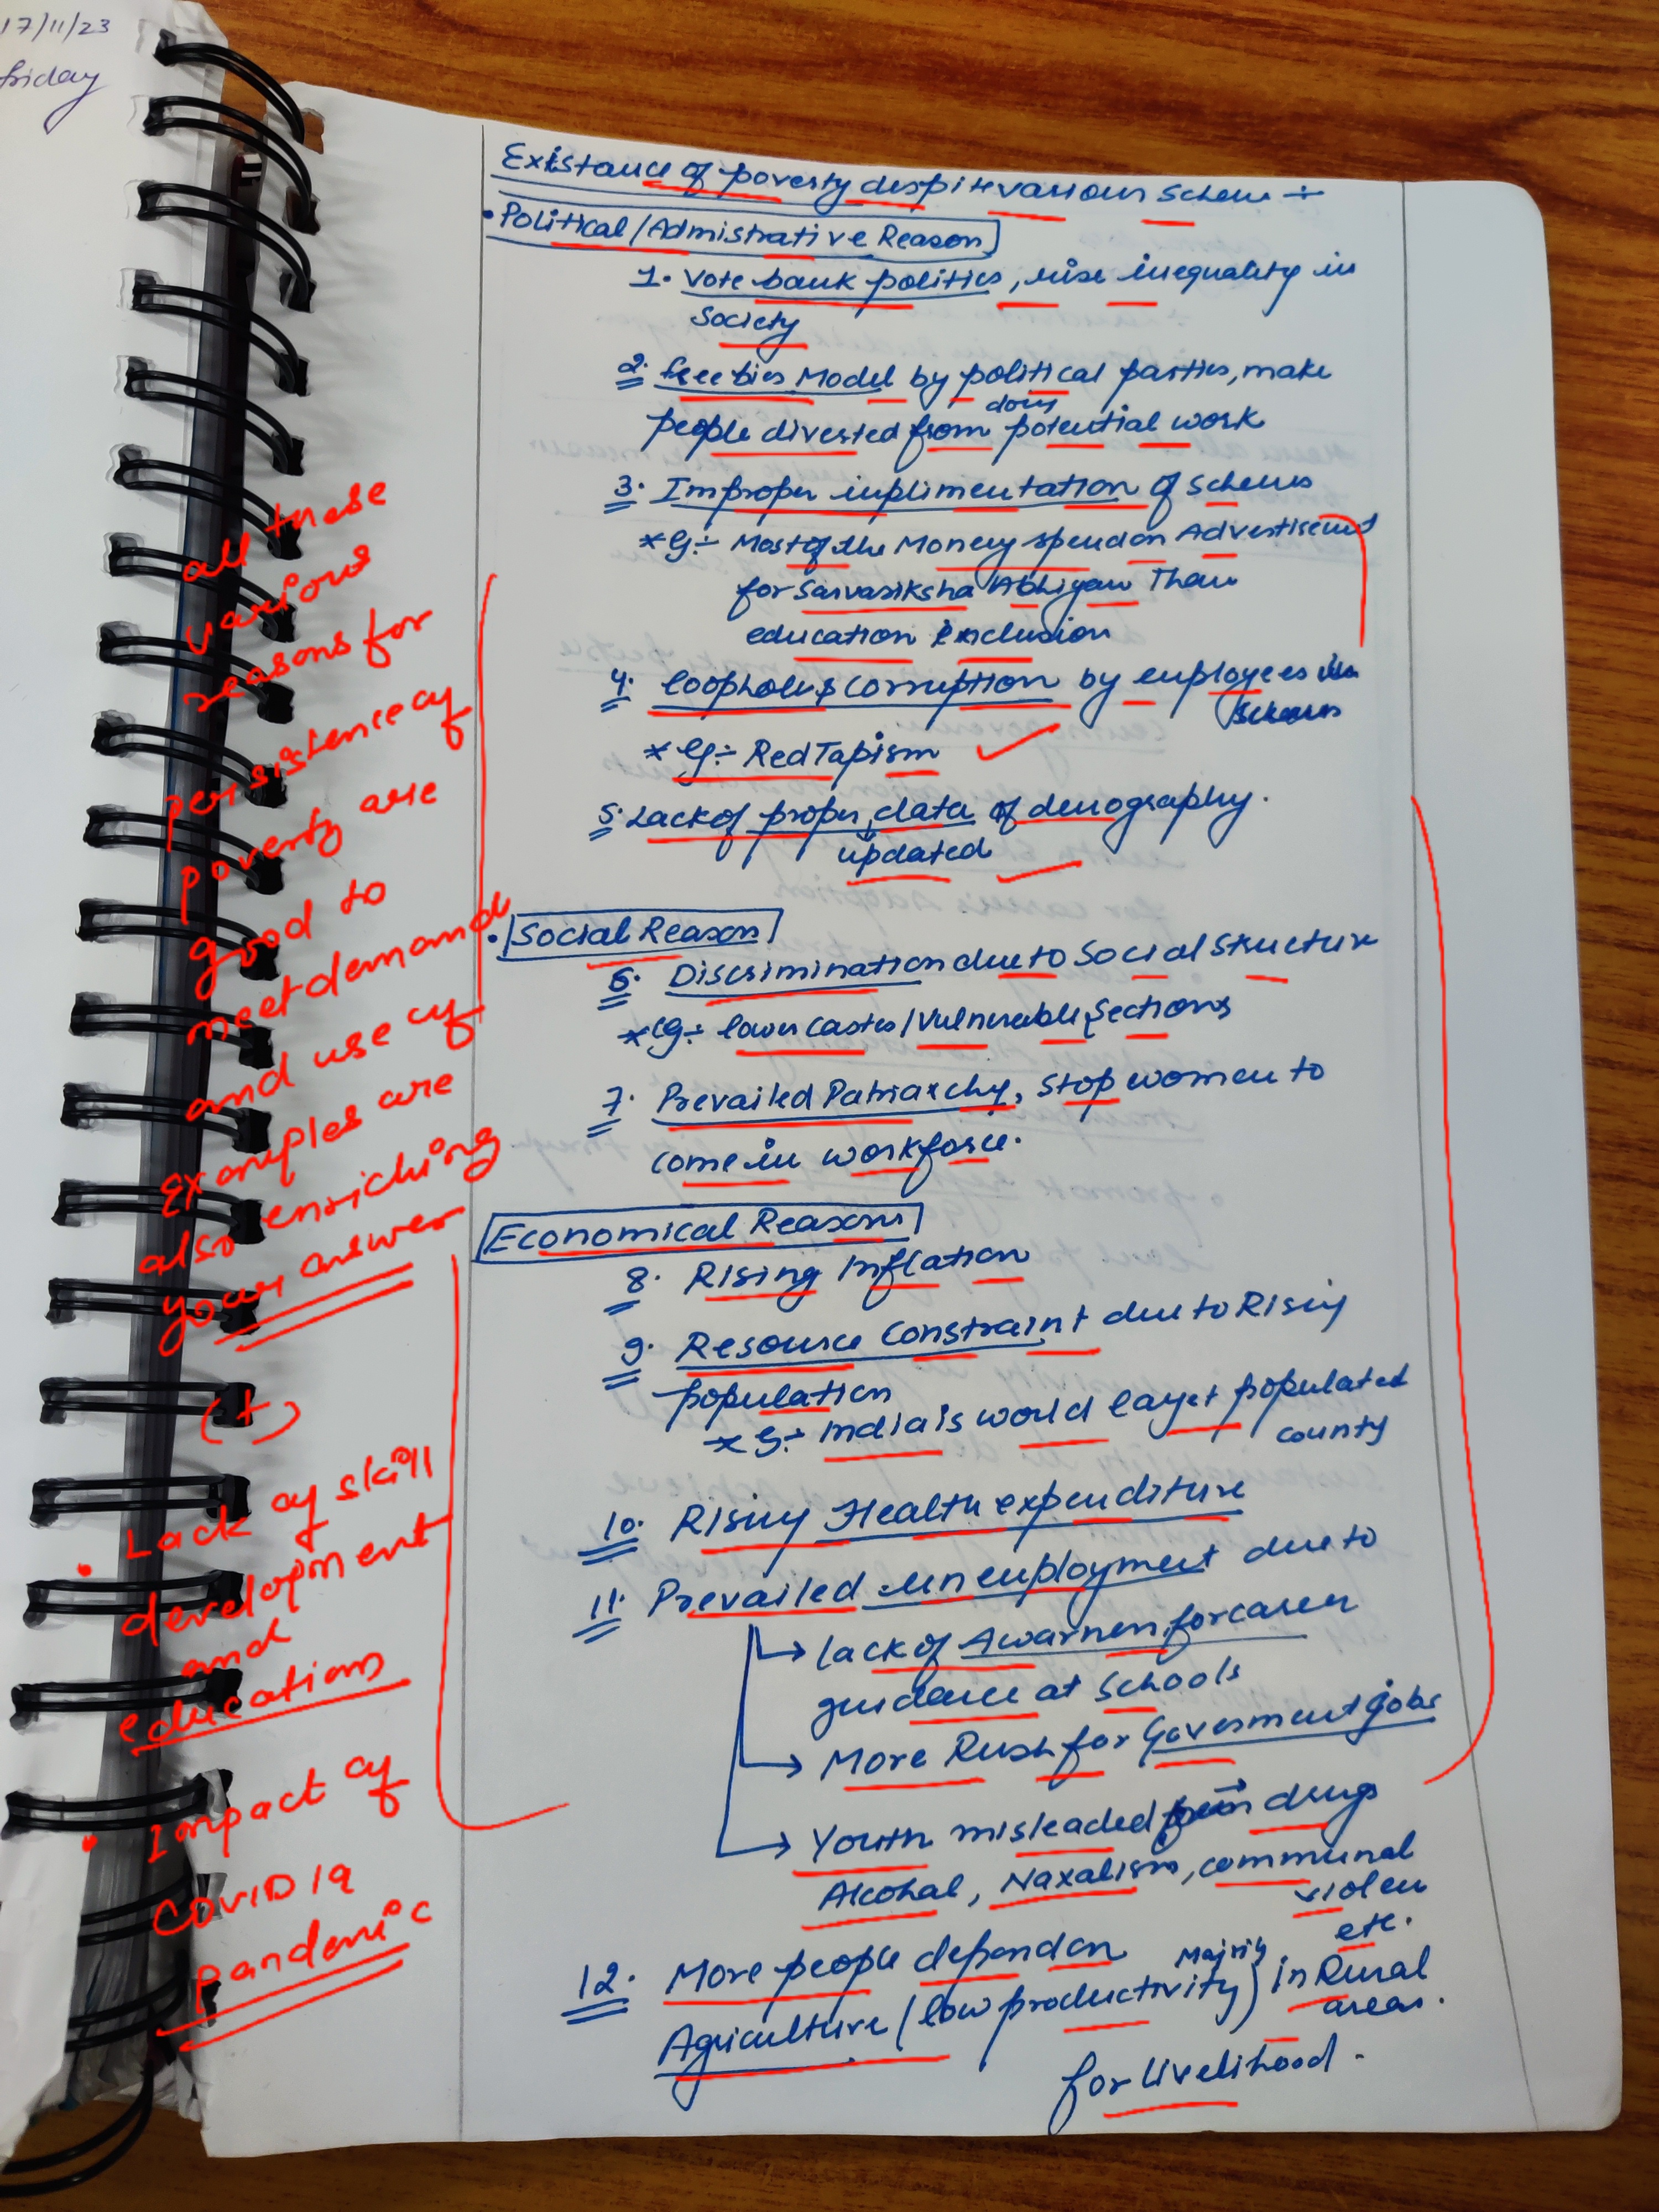 17/11/23
friday
Existance of poverty despite various Scheme ÷
• Political/Admistrative Reason
1. Vote bank politics, rise inequality in
Society
2. freebies Model by political parties, make
people diverted from potential work
3. Improper inplimentation of schemes
*Eg:- Most of the Money spend on Advertisement
for Sarvasiksha Abhiyan Than
education Inclusion
4. loopholes & corruption by employees in
schemes
*Eg:- Red Tapism
5. Lack of proper, data of demography.
updated
• Social Reason
6. Discrimination due to Social Structure
*Eg:- lower castes/Vulnerable Sections
7. Prevailed Patriarchy, stop women to
come in workforce.
Economical Reasons
8. Rising Inflation
9. Resource Constraint due to Rising
population
*Eg:- India is world largest populated
county
10. Rising Health expenditure
11. Prevailed unemployment due to
→ lack of Awarness for career
guidance at Schools
→ More Rush for Government jobs
→ Youth misleaded drugs
Alcohal, Naxalism, communal
violen
etc.
12. More people depend on
Agriculture (low productivity) Majority in Rural
areas.
for livelihood.
all these
various
reasons for
persistence of
poverty are
good to
meet demand
and use of
Examples are
also enriching
your answer
(+)
• Lack of skill
development
and
educations
• Impact of
COVID 19
pandemic